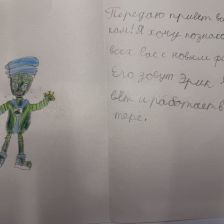 Передаю привет ва
кам! Я хочу познако
всех вас с новым ф
Его зовут Эрик
вёт и работает в
тере.